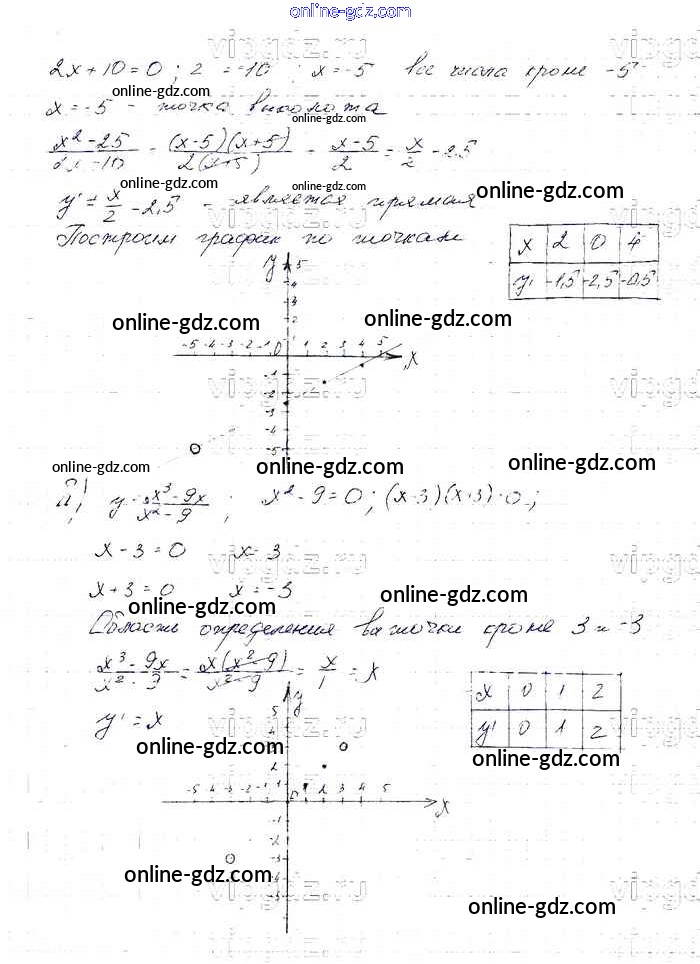 online-gdz.com
vipgdz.ru
2x+10=0; 2 = -10 ; x=-5 все числа кроме -5
online-gdz.com
x=-5 - точка выколота
online-gdz.com
(x²-25)/(2x-10) = ((x-5)(x+5))/(2(x+5)) = (x-5)/2 = x/2 - 2,5
online-gdz.com online-gdz.com online-gdz.com
y' = x/2 - 2,5 - является прямая
Построим график по точкам
x 2 0 4
y' -1,5 -2,5 -0,5
y 5
4
3
2
online-gdz.com online-gdz.com
-5 -4 -3 -2 -1 0 1 2 3 4 5 x
-1
-2
-3
-4
-5
online-gdz.com online-gdz.com online-gdz.com
y = (x³-9x)/(x²-9) ; x²-9=0; (x-3)(x+3)=0;
x-3=0 x=3
x+3=0 x=-3
online-gdz.com online-gdz.com
Область определения все точки кроме 3 и -3
(x³-9x)/(x²-9) = (x(x²-9))/(x²-9) = x/1 = x
x 0 1 2
y' 0 1 2
y' = x
y
5
4
online-gdz.com online-gdz.com
2
1
-5 -4 -3 -2 -1 0 1 2 3 4 5 x
-1
-2
-3
-4
-5
online-gdz.com vipgdz.ru
online-gdz.com